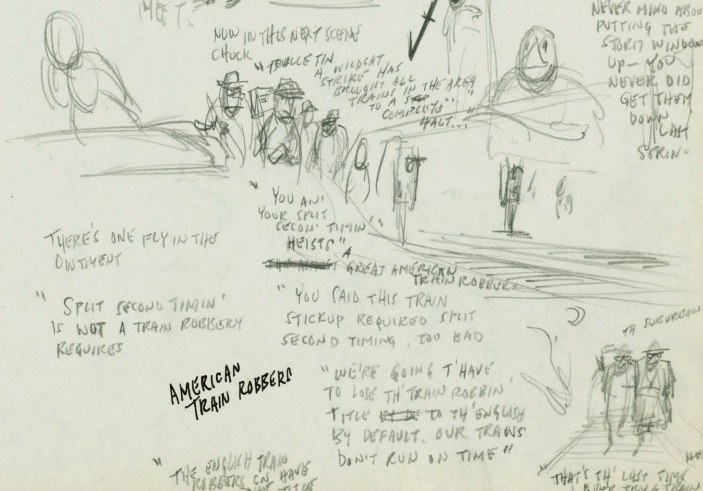 MEET.
NOW IN THIS NEXT SCENE
CHUCK
A WILDCAT
STRIKE HAS
BROUGHT ALL
TRAINS IN THE AREA
TO A COMPLETE
HALT..."
NEVER MIND ABOU
PUTTING THE
STORM WINDOW
UP— YOU
NEVER DID
GET THEM
DOWN
LAST
"YOU AN'
YOUR SPLIT
SECON' TIMIN'
HEISTS"
A
GREAT AMERICAN
TRAIN ROBBERS
THERE'S ONE FLY IN THE
OINTMENT
"SPLIT SECOND TIMIN'
IS NOT A TRAIN ROBBERY
REQUIRES
"YOU SAID THIS TRAIN
STICKUP REQUIRED SPLIT
SECOND TIMING. TOO BAD
AMERICAN
TRAIN ROBBERS
"WE'RE GOING T'HAVE
TO LOSE TH'TRAIN ROBBIN'
TITLE TO TH'ENGLISH
BY DEFAULT. OUR TRAINS
DON'T RUN ON TIME"
TH SUBURBAN
"THE ENGLISH TRAIN
ROBBERS CN HAVE
TITLE
"THAT'S TH' LAST TIME
TRAIN